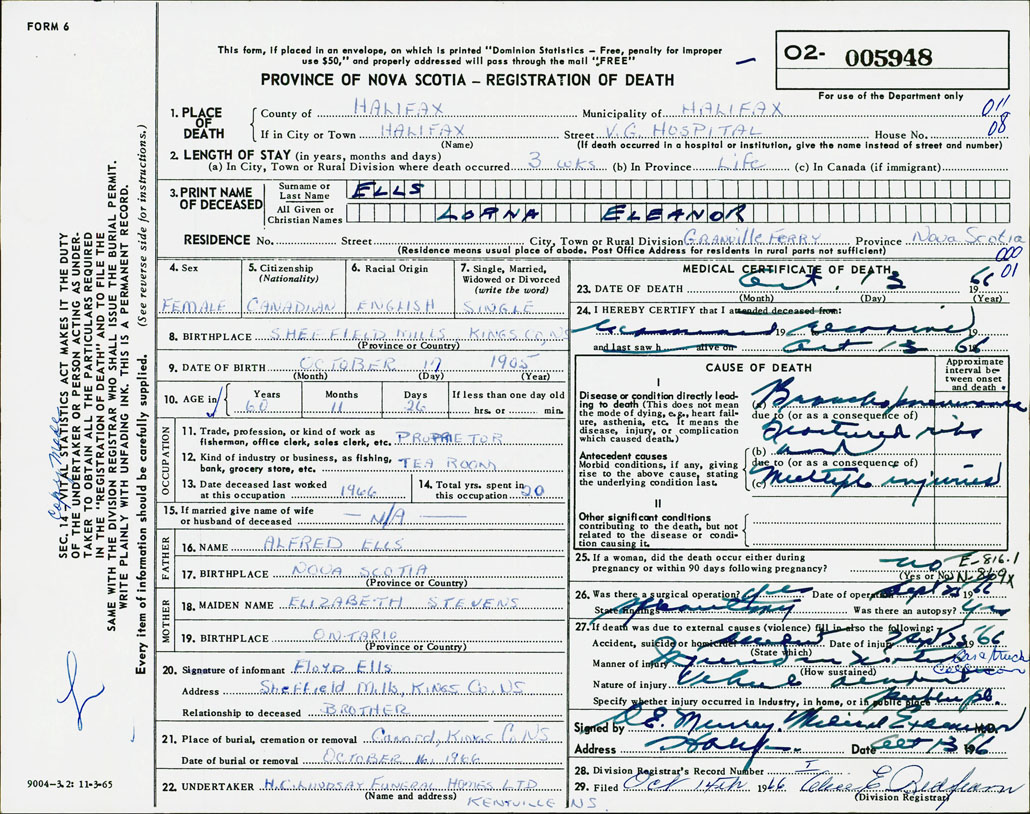 FORM 6
This form, if placed in an envelope, on which is printed "Dominion Statistics – Free, penalty for improper
use $50," and properly addressed will pass through the mail "FREE"
PROVINCE OF NOVA SCOTIA – REGISTRATION OF DEATH
O2- 005948
For use of the Department only
1. PLACE OF DEATH
County of HALIFAX Municipality of HALIFAX 011
If in City or Town HALIFAX Street V.G. HOSPITAL House No. 08
(Name) (If death occurred in a hospital or institution, give the name instead of street and number)
2. LENGTH OF STAY (in years, months and days)
(a) In City, Town or Rural Division where death occurred 3 wks (b) In Province Life (c) In Canada (if immigrant)
3. PRINT NAME OF DECEASED
Surname or Last Name ELLS
All Given or Christian Names LORNA ELEANOR
RESIDENCE No. Street City, Town or Rural Division GRANVILLE FERRY Province Nova Scotia
(Residence means usual place of abode. Post Office Address for residents in rural parts not sufficient)
000
01
4. Sex FEMALE
5. Citizenship (Nationality) CANADIAN
6. Racial Origin ENGLISH
7. Single, Married, Widowed or Divorced (write the word) SINGLE
8. BIRTHPLACE SHEFFIELD MILLS KINGS CO, NS
(Province or Country)
9. DATE OF BIRTH OCTOBER 17 1905
(Month) (Day) (Year)
10. AGE in Years 60 Months 11 Days 26 If less than one day old hrs. or min.
OCCUPATION
11. Trade, profession, or kind of work as
fisherman, office clerk, sales clerk, etc. PROPRIETOR
12. Kind of industry or business, as fishing,
bank, grocery store, etc. TEA ROOM
13. Date deceased last worked at this occupation 1966
14. Total yrs. spent in this occupation 20
15. If married give name of wife
or husband of deceased — N/A —
FATHER
16. NAME ALFRED ELLS
17. BIRTHPLACE NOVA SCOTIA
(Province or Country)
MOTHER
18. MAIDEN NAME ELIZABETH STEVENS
19. BIRTHPLACE ONTARIO
(Province or Country)
20. Signature of informant FLOYD ELLS
Address Sheffield Mills, KINGS CO. NS
Relationship to deceased BROTHER
21. Place of burial, cremation or removal Canard, KINGS CO NS
Date of burial or removal OCTOBER 16, 1966
22. UNDERTAKER H.C. LINDSAY FUNERAL HOMES LTD
(Name and address) KENTVILLE NS
MEDICAL CERTIFICATE OF DEATH
23. DATE OF DEATH Oct. 13 1966
(Month) (Day) (Year)
24. I HEREBY CERTIFY that I attended deceased from:
19 19
and last saw h alive on Oct 13 66
CAUSE OF DEATH
Approximate interval between onset and death
I
Disease or condition directly leading to death (This does not mean the mode of dying, e.g., heart failure, asthenia, etc. It means the disease, injury, or complication which caused death.)
(a) Bronchopneumonia
due to (or as a consequence of)
fractured ribs
(b) and
due to (or as a consequence of)
(c) Multiple injuries
Antecedent causes
Morbid conditions, if any, giving rise to the above cause, stating the underlying condition last.
II
Other significant conditions
contributing to the death, but not related to the disease or condition causing it.
25. If a woman, did the death occur either during
pregnancy or within 90 days following pregnancy? no
(Yes or No)
E-816.1
N-869X
26. Was there a surgical operation? yes Date of operation Sept 23 1966
State findings Was there an autopsy? Yes
27. If death was due to external causes (violence) fill in also the following:
Accident, suicide or homicide accident Date of injury Sept 23 1966
(State which)
Manner of injury Injured in motor
(How sustained)
Car & truck
Collision
Nature of injury vehicle accident
Specify whether injury occurred in industry, in home, or in public place public pl.
Signed by E. Murray Medical Examiner M.D.
Address Halifax Date Oct 13 1966
28. Division Registrar's Record Number
29. Filed Oct 14th 1966
(Division Registrar)
SEC. 14 – VITAL STATISTICS ACT MAKES IT THE DUTY
OF THE UNDERTAKER OR PERSON ACTING AS UNDER-
TAKER TO OBTAIN ALL THE PARTICULARS REQUIRED
IN THE "REGISTRATION OF DEATH" AND TO FILE THE
SAME WITH THE DIVISION REGISTRAR WHO SHALL ISSUE THE BURIAL PERMIT.
WRITE PLAINLY WITH UNFADING INK. THIS IS A PERMANENT RECORD.
Every item of information should be carefully supplied. (See reverse side for instructions.)
9004-3.2: 11-3-65